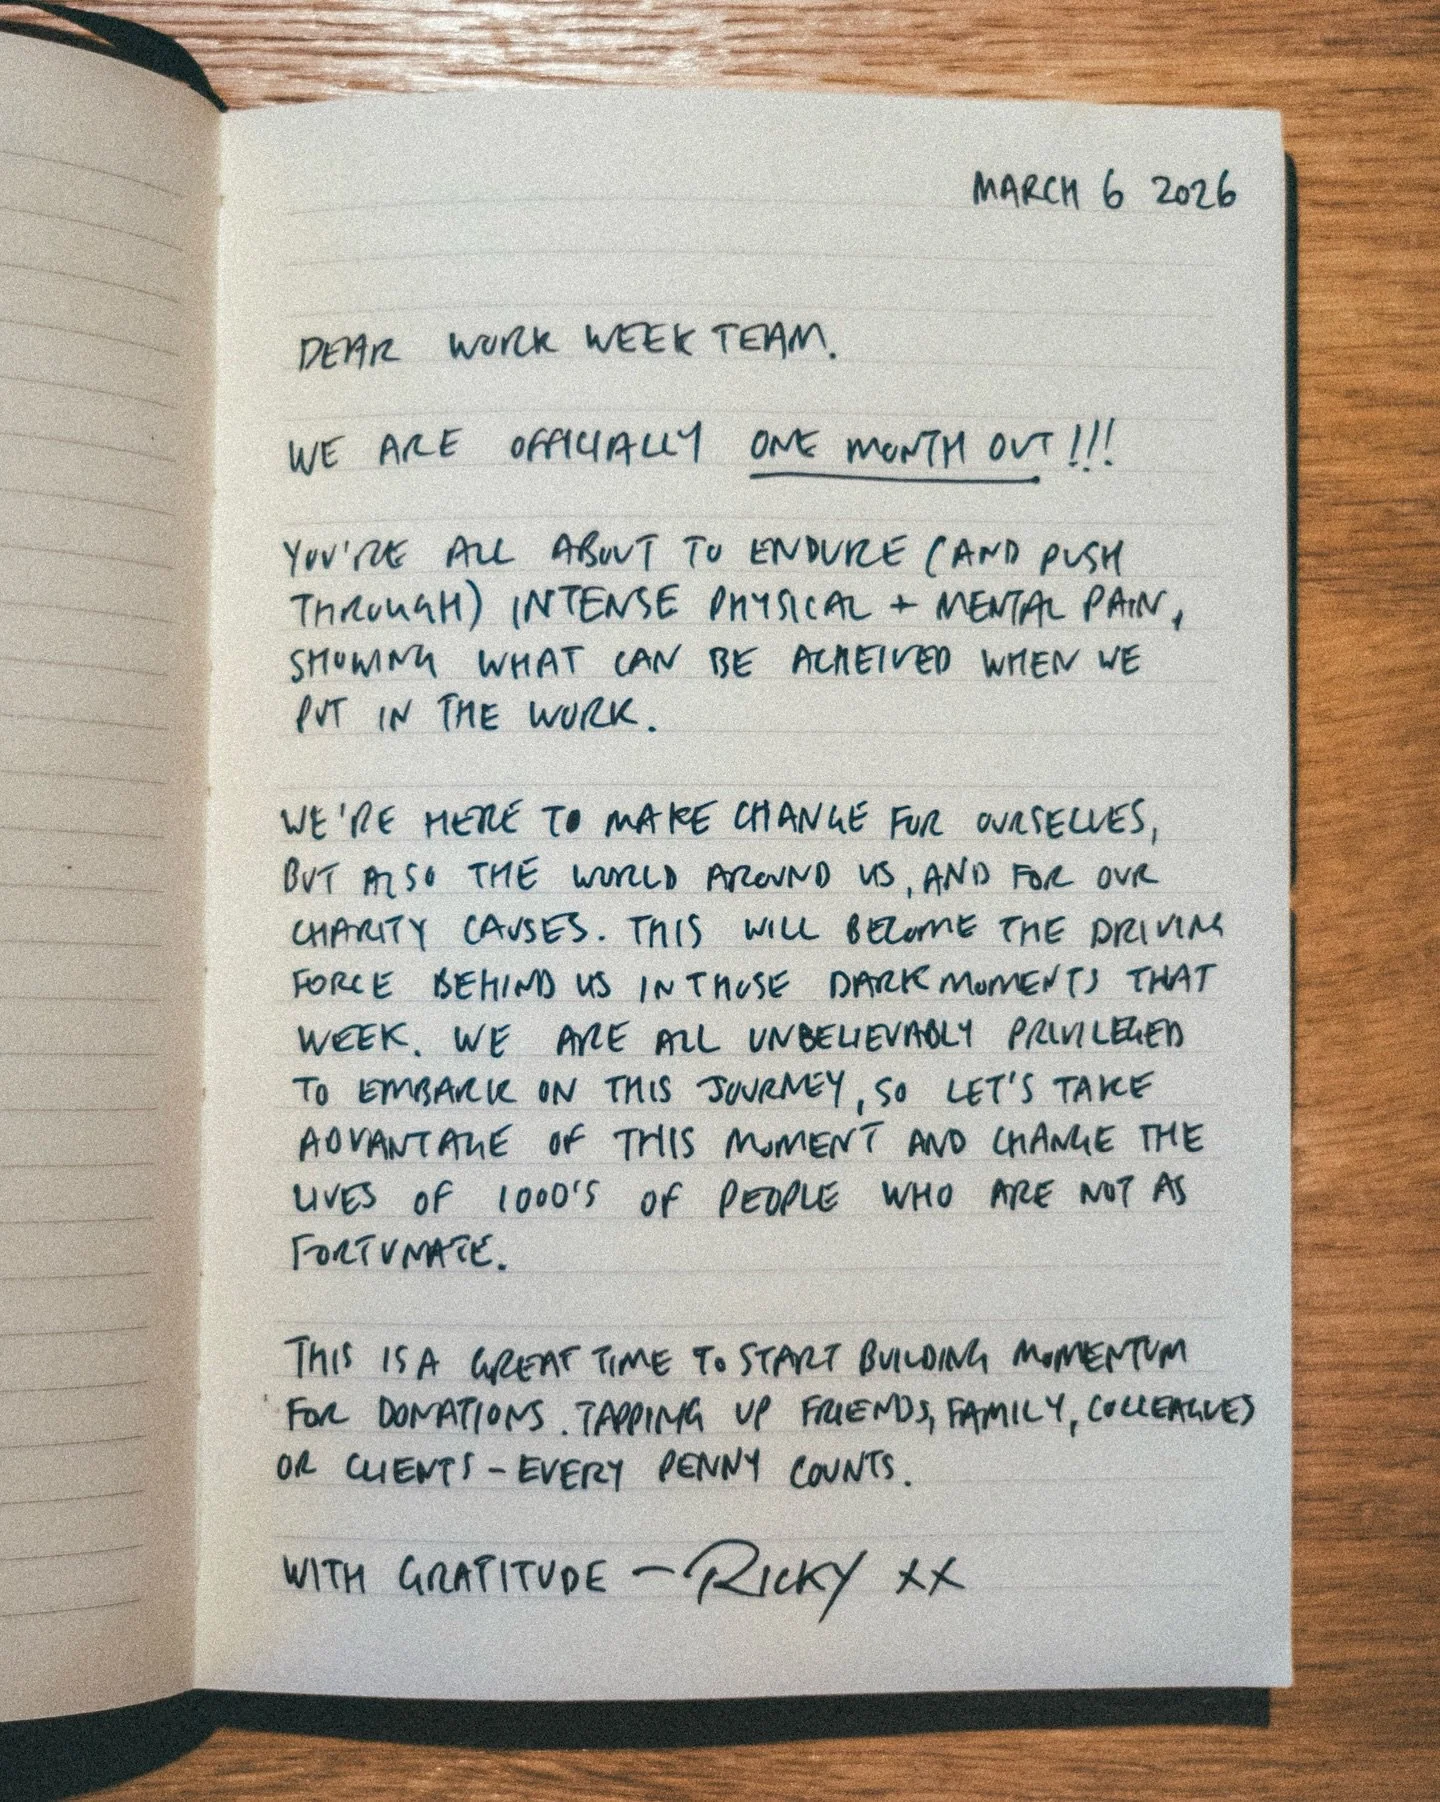 MARCH 6 2026
DEAR WORK WEEK TEAM.
WE ARE OFFICIALLY ONE MONTH OUT!!!
YOU'RE ALL ABOUT TO ENDURE (AND PUSH
THROUGH) INTENSE PHYSICAL + MENTAL PAIN,
SHOWING WHAT CAN BE ACHEIVED WHEN WE
PUT IN THE WORK.
WE'RE HERE TO MAKE CHANGE FOR OURSELVES,
BUT ALSO THE WORLD AROUND US, AND FOR OUR
CHARITY CAUSES. THIS WILL BECOME THE DRIVING
FORCE BEHIND US IN THOSE DARK MOMENTS THAT
WEEK. WE ARE ALL UNBELIEVABLY PRIVILEGED
TO EMBARK ON THIS JOURNEY, SO LET'S TAKE
ADVANTAGE OF THIS MOMENT AND CHANGE THE
LIVES OF 1000'S OF PEOPLE WHO ARE NOT AS
FORTUNATE.
THIS IS A GREAT TIME TO START BUILDING MOMENTUM
FOR DONATIONS. TAPPING UP FRIENDS, FAMILY, COLLEAGUES
OR CLIENTS - EVERY PENNY COUNTS.
WITH GRATITUDE - RICKY XX